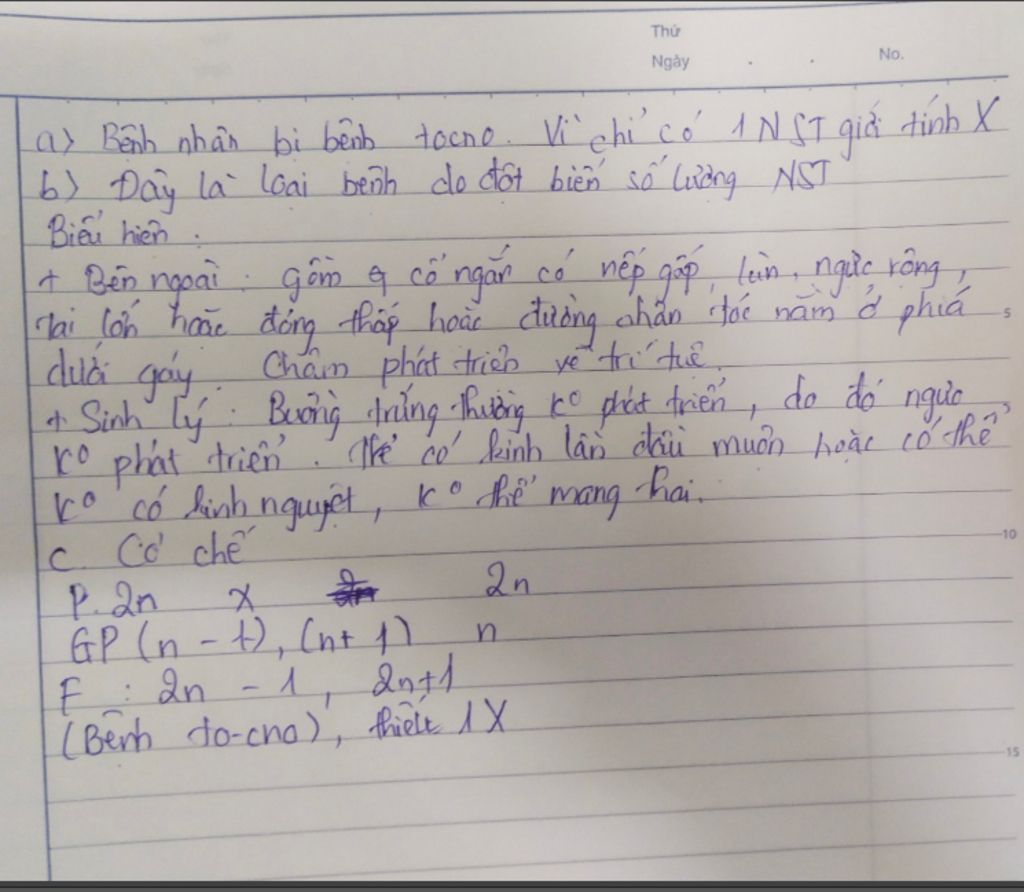 Thứ
Ngày . . No.
a) Bệnh nhân bị bệnh tocno. Vì chỉ có 1 NST giới tính X
b) Đây là loại bệnh do đột biến số lượng NST
Biểu hiện :
+ Bên ngoài : gồm cổ ngắn có nếp gấp, lùn, ngực rộng,
tai lớn hoặc đóng thấp hoặc đường chân tóc nằm ở phía
5
dưới gáy. Chậm phát triển về trí tuệ.
+ Sinh lý : Buồng trứng thường k° phát triển, do đó ngực
k° phát triển. Trẻ có kinh lần đầu muộn hoặc có thể
k° có kinh nguyệt, k° thể mang thai.
c. Cơ chế
10
P. 2n x 2n
GP (n - 1), (n + 1) n
F : 2n - 1, 2n+1
(Bệnh to-cno), thiếu 1X
15